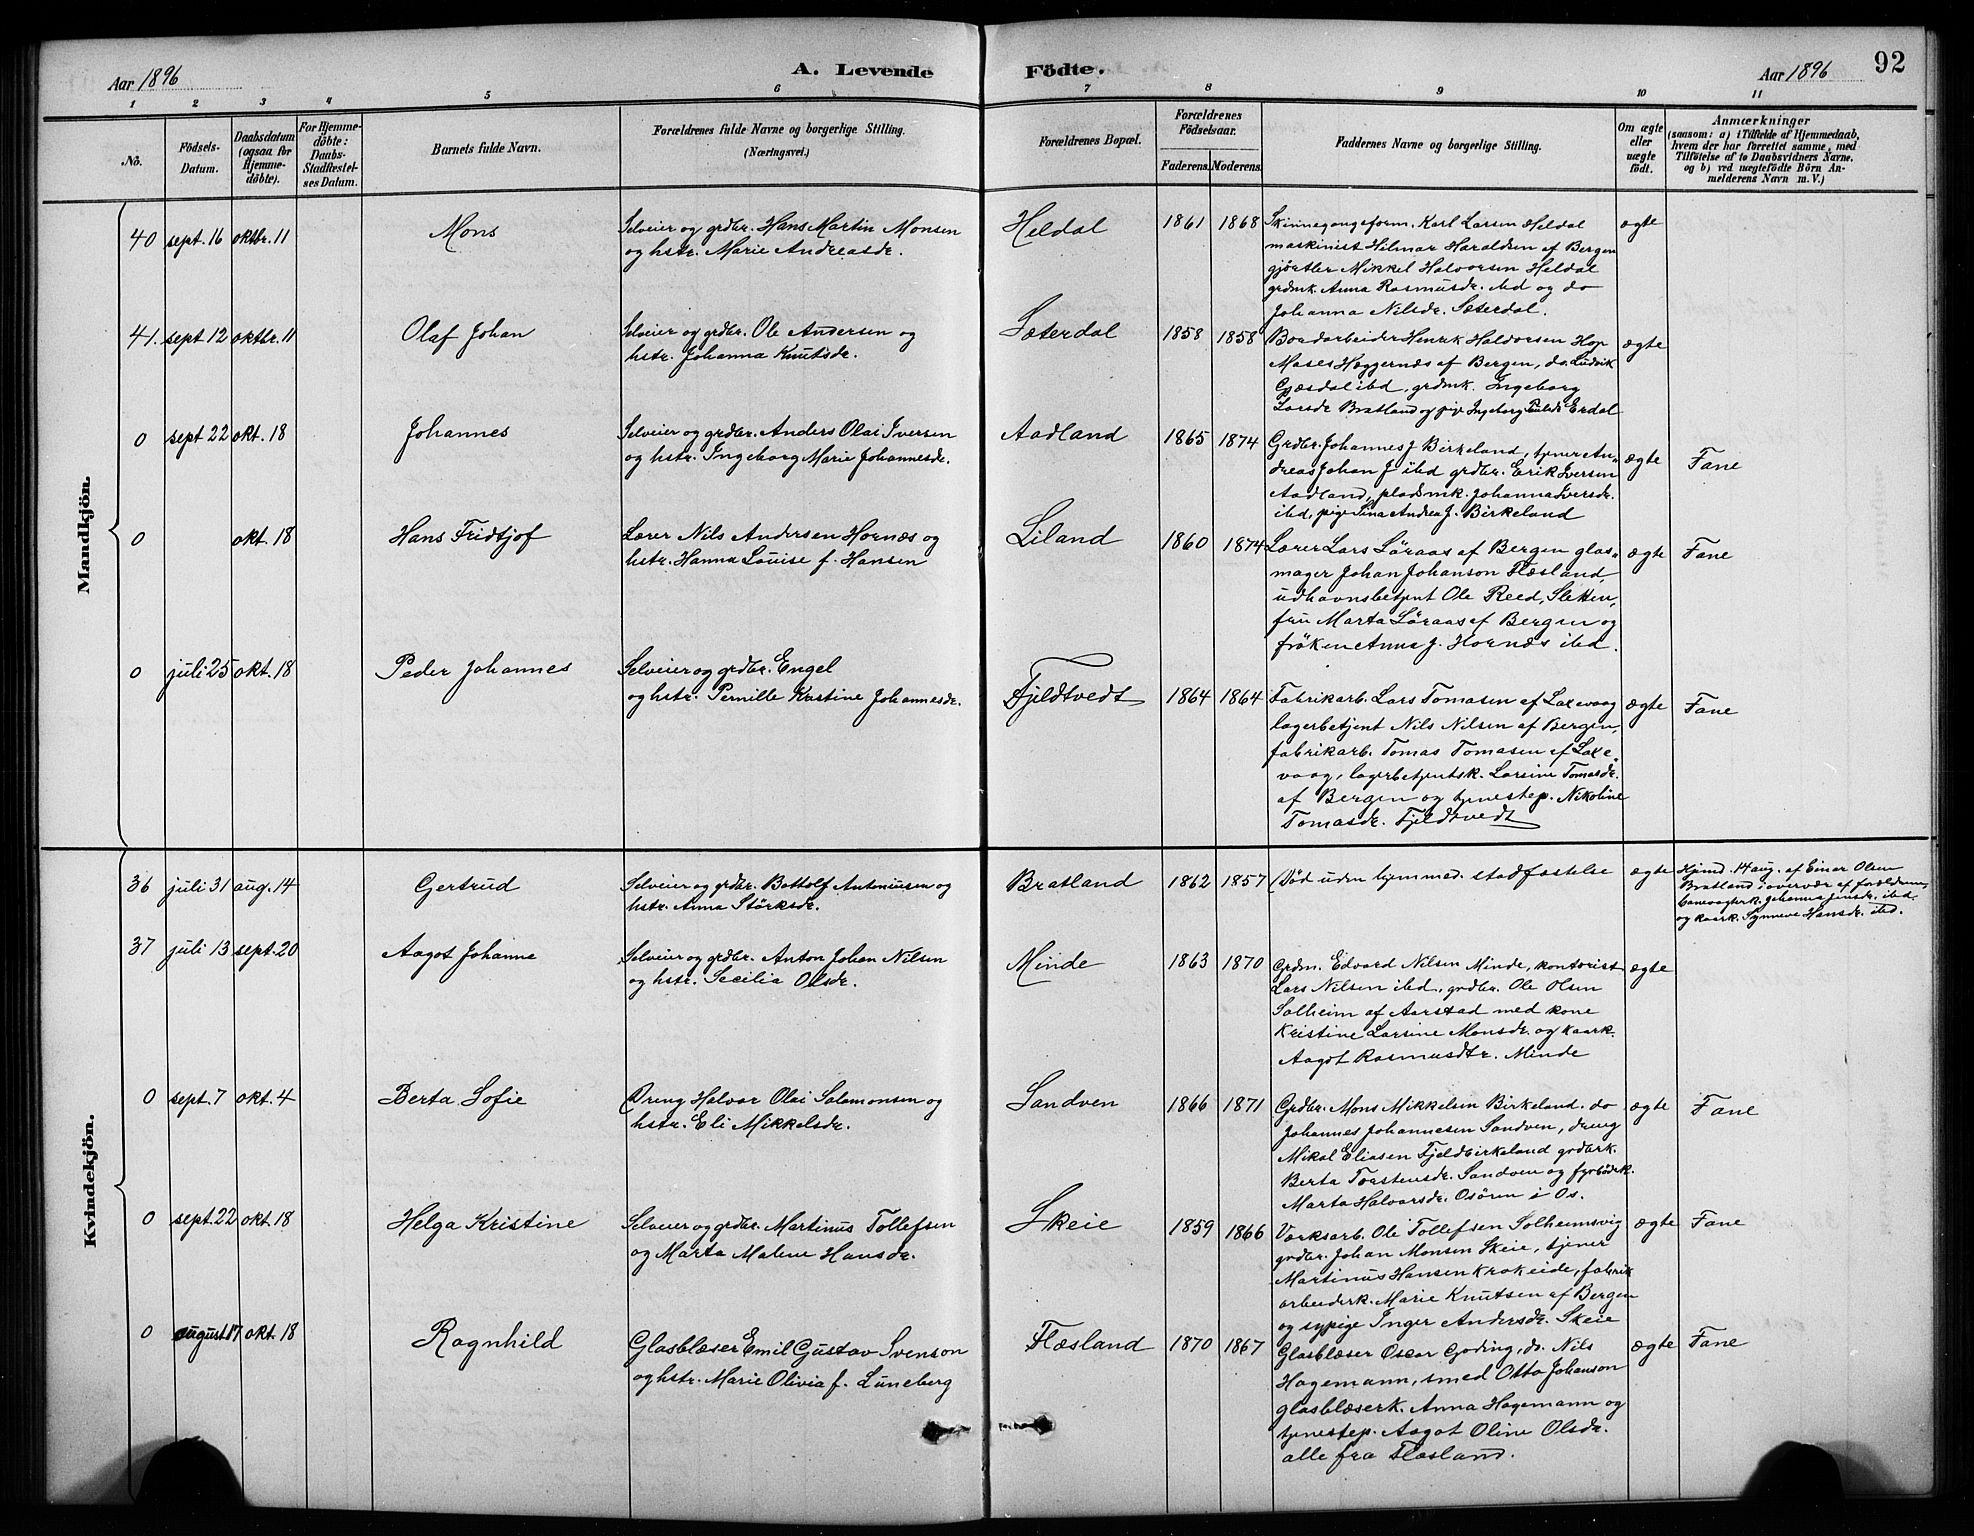 Aar 1896
A. Levende
Födte.
Aar 1896
92
1 2 3 4 5 6 7 8 9 10 11
No.
Födsels-
Datum.
Daabsdatum
(ogsaa for
Hjemme-
döbte).
For Hjemme-
döbte:
Daabs-
Stadfæstel-
ses Datum.
Barnets fulde Navn.
Forældrenes fulde Navne og borgerlige Stilling.
(Næringsvei.)
Forældrenes Bopæl.
Forældrenes
Födselsaar.
Faderens. Moderens.
Faddernes Navne og borgerlige Stilling.
Om ægte
eller
uægte
födt.
Anmærkninger
(saasom: a) i Tilfælde af Hjemmedaab,
hvem der har forrettet samme, med
Tilföielse af to Daabsvidners Navne,
og b) ved uægtefödte Börn An-
melderens Navn m. V.)
Mandkjön.
40 sept. 16 oktbr. 11 Mons
Selveier og grdbr. Hans Martin Monsen
og hstr. Marie Andreasdr.
Heldal 1861 1868
Skinnegangsform. Karl Larsen Heldal
maskinist Hilmar Haraldsen af Bergen
gjørtler Mikkel Halvorsen Heldal
grdmk. Anna Rasmusdr. ibd og do
Johanna Nilsdr. Sæterdal.
ægte
41. sept 12 oktbr. 11 Olaf Johan
Selveier og grdbr. Ole Andersen og
hstr. Johanna Knutsdr.
Sæterdal 1858 1858
Boadarbeider Henrik Haldorsen Hop
Moses Haggernæs af Bergen, do. Ludvik
Gjæsdal ibd, grdmk. Ingeborg
Larsdr Bratland og pige Ingeborg Erdal
ægte
0 sept 22 okt. 18 Johannes
Selveier og grdbr. Anders Olai Iversen
og hstr. Ingeborg Marie Johannesdr.
Aadland 1865 1874
Grdbr. Johannes J Birkeland, tjener An-
dreas Johan J ibd grdbr. Erik Iversen
Aadland, pladsmk. Johanna Iversdr.
ibd, pige Sina Andrea J. Birkeland
ægte Fane
0 okt. 18 Hans Fridtjof
Lærer Nils Andersen Hornæs og
hstr. Hanna Louise f. Hansen
Liland 1860 1874
Lærer Lars Søraas af Bergen glas-
mager Johan Johanson Flæsland,
udhavnsbetjent Ole Reed, Sletten,
fru Marta Søraas af Bergen og
frøken Anna J. Hornæs ibd.
ægte Fane
0 juli 25 okt. 18 Peder Johannes
Selveier og grdbr. Engel
og hstr. Pernille Kristine Johannesdr.
Fjeldtvedt 1864 1864
Fabrikarb. Lars Tomasen af Laxevaag
lagerbetjent Nils Nilsen af Bergen,
fabrikarb. Tomas Tomasen af Laxe-
vaag, lagerbetjentsk. Larsine Tomasdr.
af Bergen og tjenestep. Nikoline
Tomasdr. Fjeldtvedt
ægte Fane
Kvindekjön.
36 juli 31 aug. 14 Gertrud
Selveier og grdbr. Bottolf Antoniusen og
hstr. Anna Størksdr.
Bratland 1862 1857
Død uden hjemmed. stadfæstelse
ægte
Hjmd. 14 aug. af Einar Olsen
Bratland i overvær af forældrene,
Johanna Jensdr. ibd
og kaark. Synneve Hansdr. ibd.
37 juli 13 sept. 20 Aagot Johanne
Selveier og grdbr. Anton Johan Nilsen
og hstr. Secilia Olsdr.
Minde 1863 1870
Grdm. Edvard Nilsen Minde, kontorist
Lars Nilsen ibd, grdbr. Ole Olsen
Solheim af Aarstad med kone
Kristine Larsine Monsdr. og kaark.
Aagot Rasmusdtr. Minde
ægte
0 sept. 7 okt. 4 Berta Sofie
Dreng Halvor Olai Salamonsen og
hstr. Eli Mikkelsdr.
Sandven 1866 1871
Grdbr. Mons Mikkelsen Birkeland. do
Johannes Johannesen Sandven, dreng
Mikal Eliasen Fjeldbirkeland grdbrk.
Berta Torstensdr. Sandven og fyrbøderk.
Marta Halvorsdr. Osøren i Os.
ægte Fane
0 sept. 22 okt. 18 Helga Kristine
Selveier og grdbr. Martinus Tollefsen
og Marta Malene Hansdr.
Skeie 1859 1866
Værksarb. Ole Tollefsen Solheimsvig
grdbr. Johan Monsen Skeie, tjener
Martinus Hansen Krokeide, fabrik
arbeiderk. Marie Knutsen af Bergen
og sypige Inger Andersdr. Skeie
ægte Fane
0 august 17 okt. 18 Ragnhild
Glasblæser Emil Gustav Svenson
og hstr. Marie Olivia f. Luneberg
Flæsland 1870 1867
Glasblæser Oscar Goding, do. Nils
Hagemann, smed Otto Johanson
glasblæserk. Anna Hagemann og
tjenestep. Aagot Oline Olsdr.
alle fra Flæsland.
ægte Fane